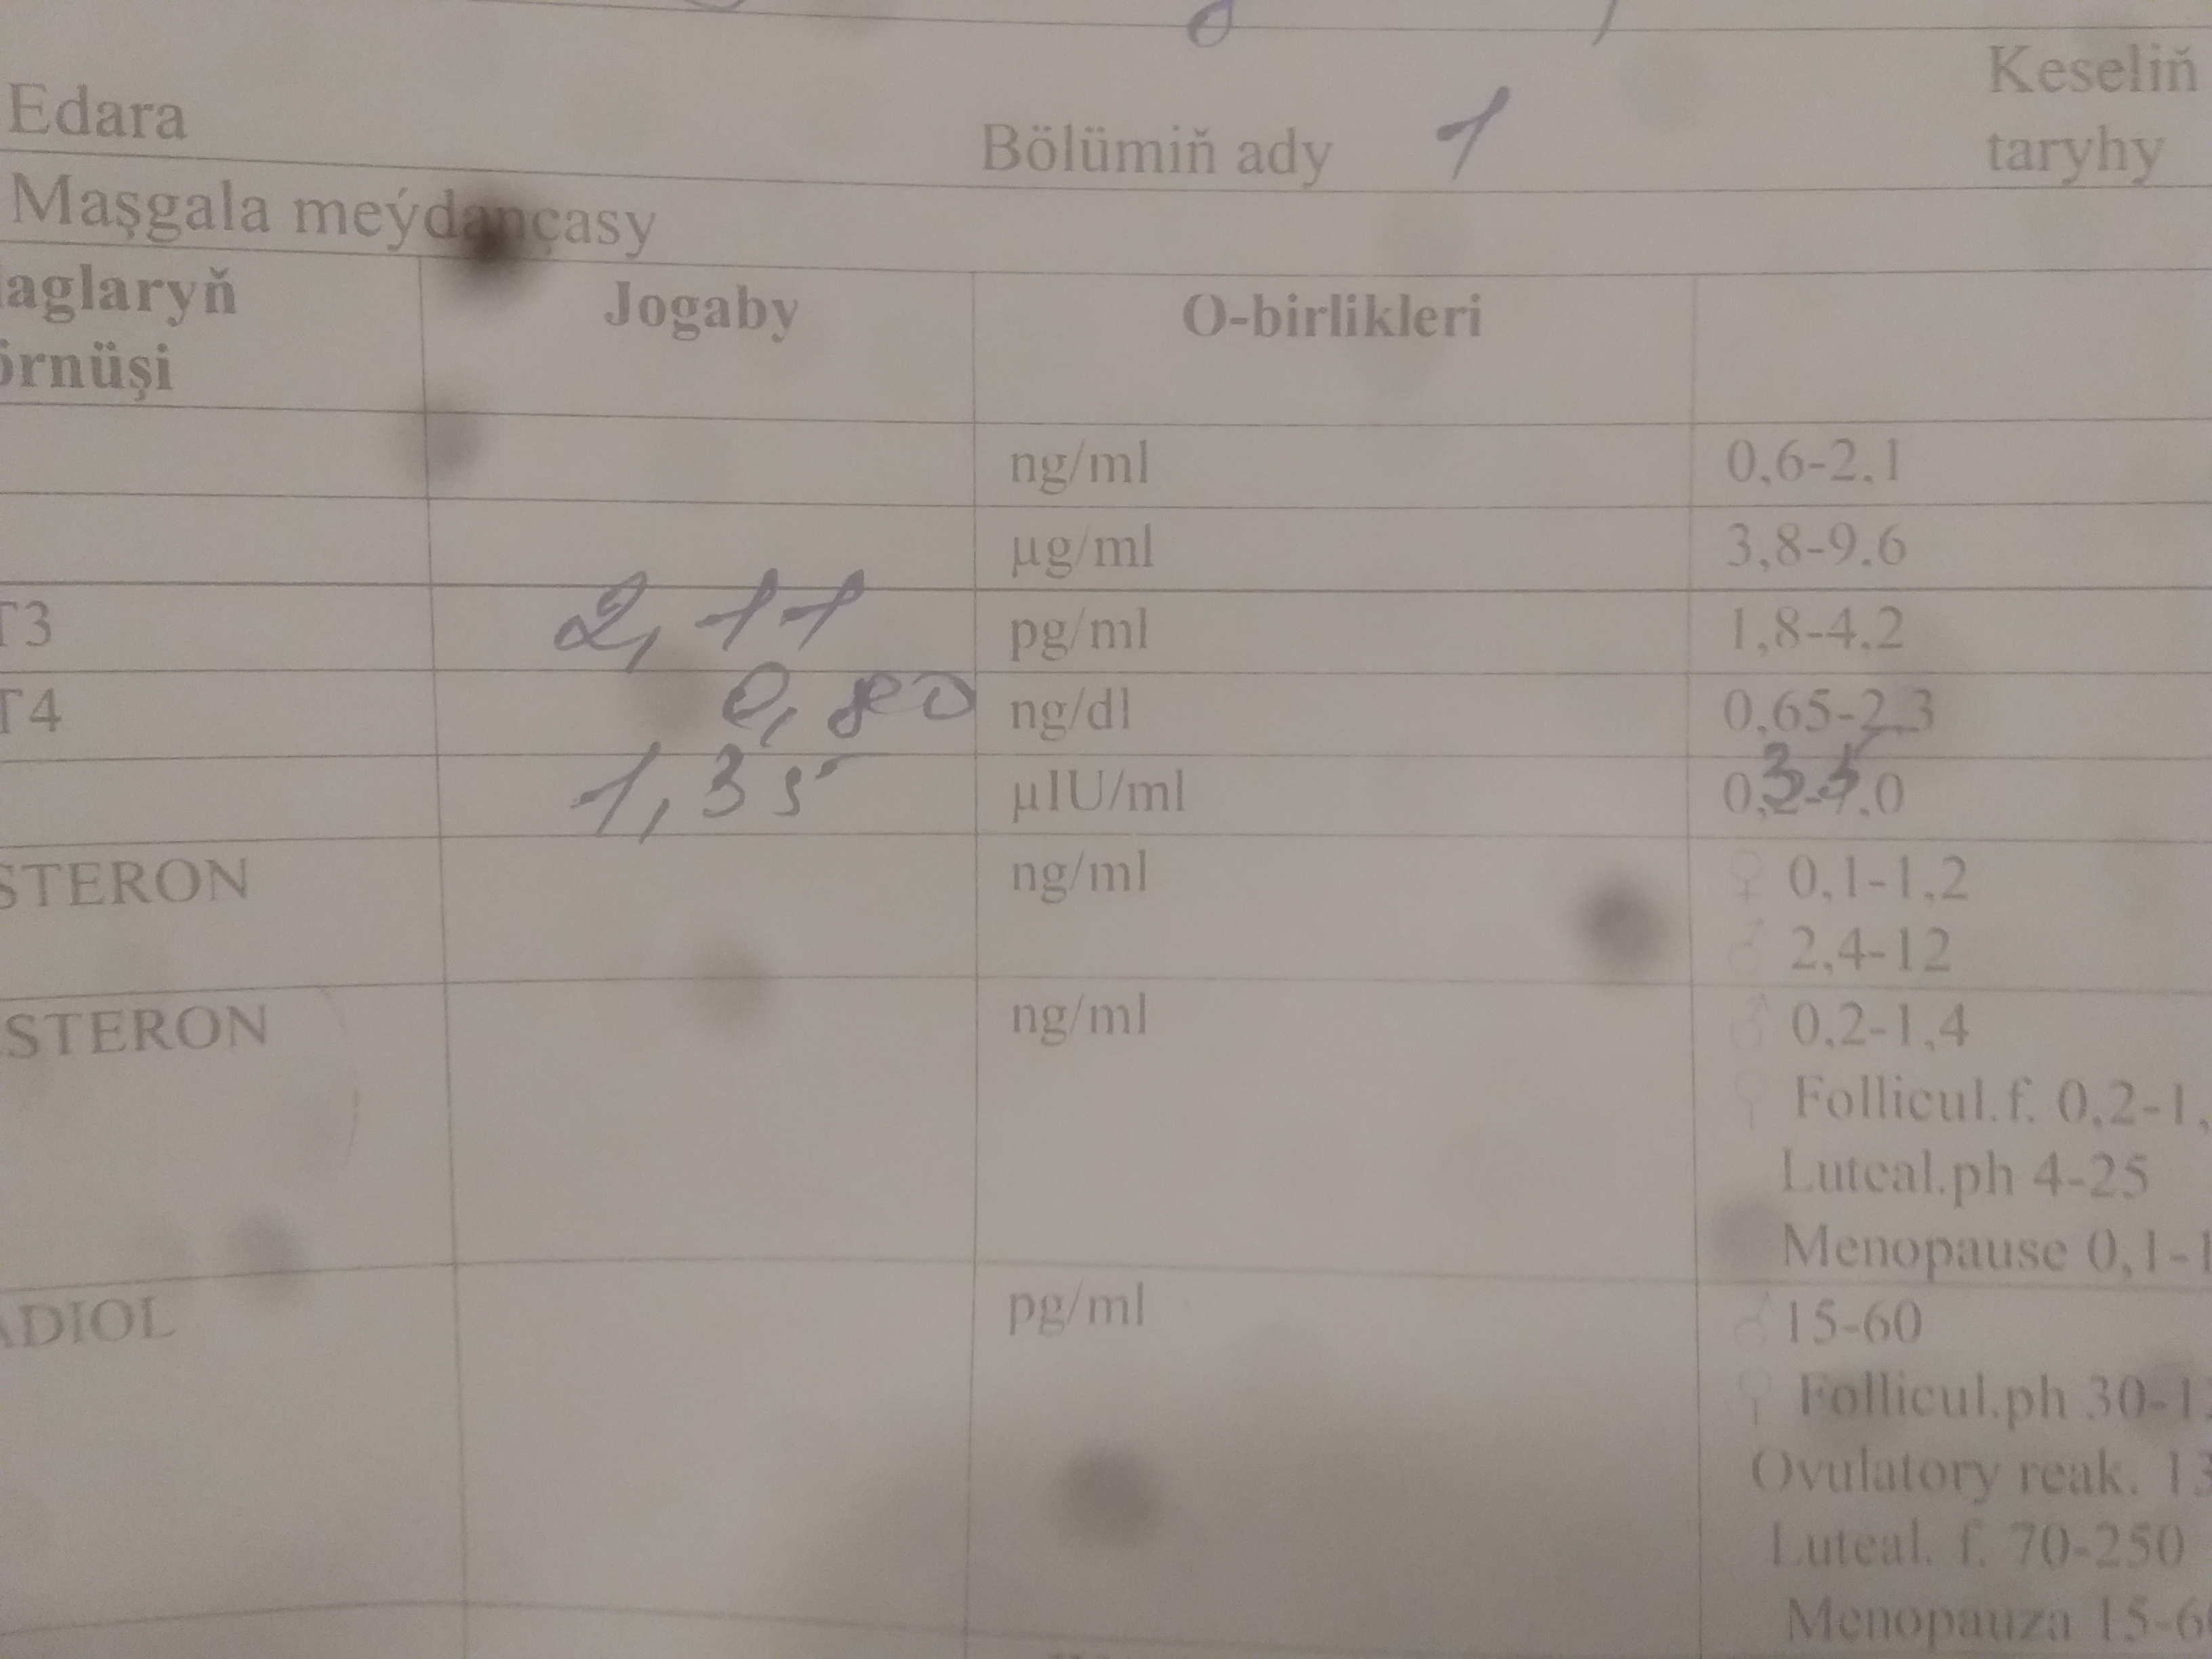 Edara Bölümiň ady 1 Keseliň taryhy
Maşgala meýdançasy
laglaryň örnüşi Jogaby O-birlikleri
ng/ml 0,6-2,1
µg/ml 3,8-9,6
T3 2,11 pg/ml 1,8-4,2
T4 0,80 ng/dl 0,65-2,3
1,35 µIU/ml
STERON ng/ml ♀ 0,1-1,2
♂ 2,4-12
STERON ng/ml ♂ 0,2-1,4
♀ Follicul.f. 0,2-1,
Luteal.ph 4-25
Menopause 0,1-1
ADIOL pg/ml ♂ 15-60
♀ Follicul.ph 30-1
Ovulatory reak. 13
Luteal. f. 70-250
Menopauza 15-6